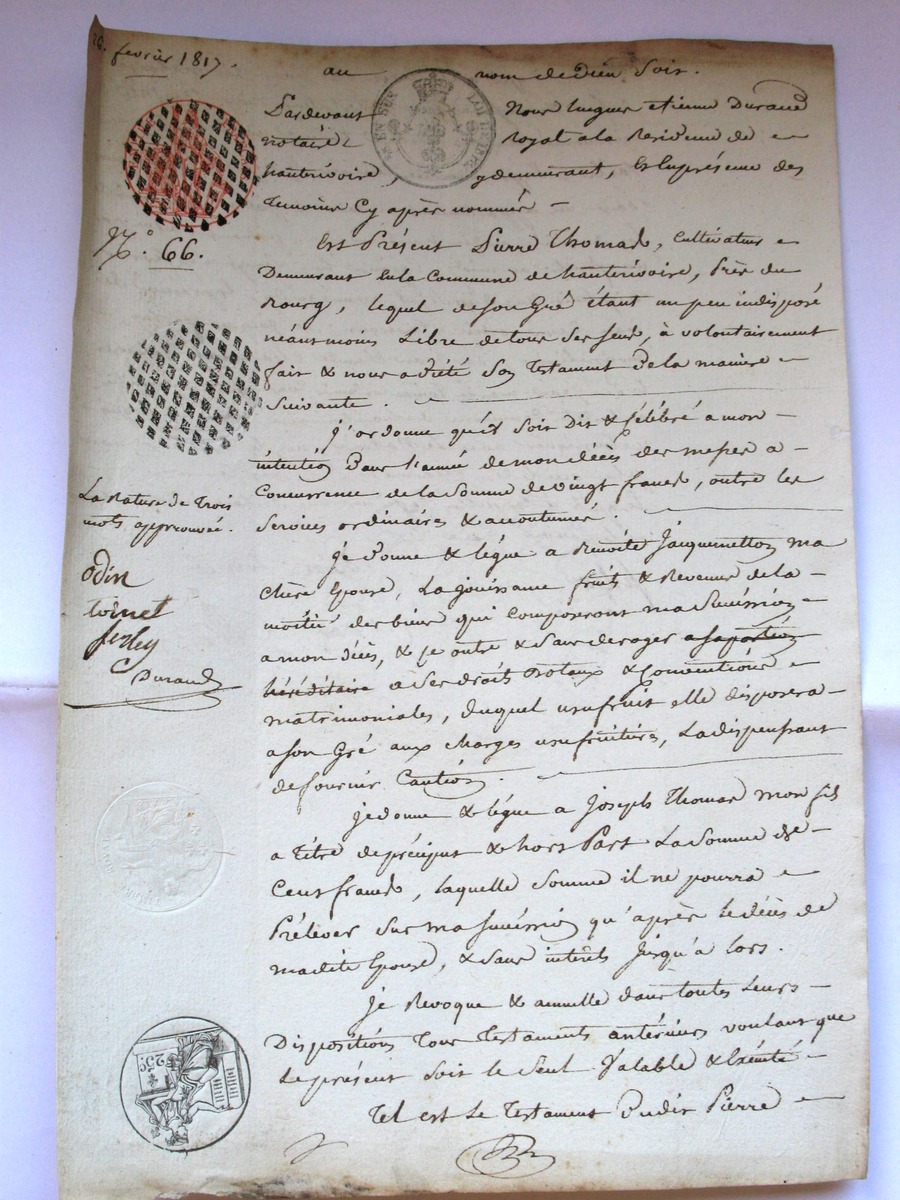 26. février 1817.
au nom de dieu soit.
Pardevant Nous hugues etienne Durand
notaire royal a la Residence de
hauterivoire, y demeurant, & en présence des
temoins Cy après nommés
N.º 66.
Est Présent Pierre Thomas, Cultivateur
Demeurant en la Commune de hauterivoire, Près du
Bourg, lequel de son Gré étant un peu indisposé
néantmoins Libre de tous ses sens, à volontairement
fait & nous a dicté Son Testament De la maniere
Suivante.
J'ordonne qu'il soit Dit & célébré a mon
intention Dans l'année de mon décès des messes a
Concurrence de la Somme de vingt francs, outre les
Services ordinaires & accoutumés.
La Rature de Trois
mots approuvée.
odin
toinet
ferley
Durand
Je Donne & légue a Benoite Jacquemetton ma
chère Epouse, La jouissance fruits & Revenus de la
moitié des biens qui Composeront ma Succéssion
a mon décès, & je outre & Sans deroger a sa portion
héréditaire a Ses droits Dotaux & Conventions
matrimoniales, duquel usufruit elle disposera
a son Gré aux charges usufruitières, La dispensant
de fournir Caution.
je donne & légue a Joseph Thomas mon fils
a titre de précipus & hors Part La Somme de
Cent francs, laquelle Somme il ne pourra
Prélever Sur ma Succéssion qu'après le décès de
madite Epouse, & sans intérêts Jusqu'à lors.
Je Revoque & annulle dans toutes Leurs
Dispositions Tous Testaments antérieurs voulant que
Le présent Soit le Seul Valable & Exécuté
25 C
Tel est Le Testament Dudit Pierre